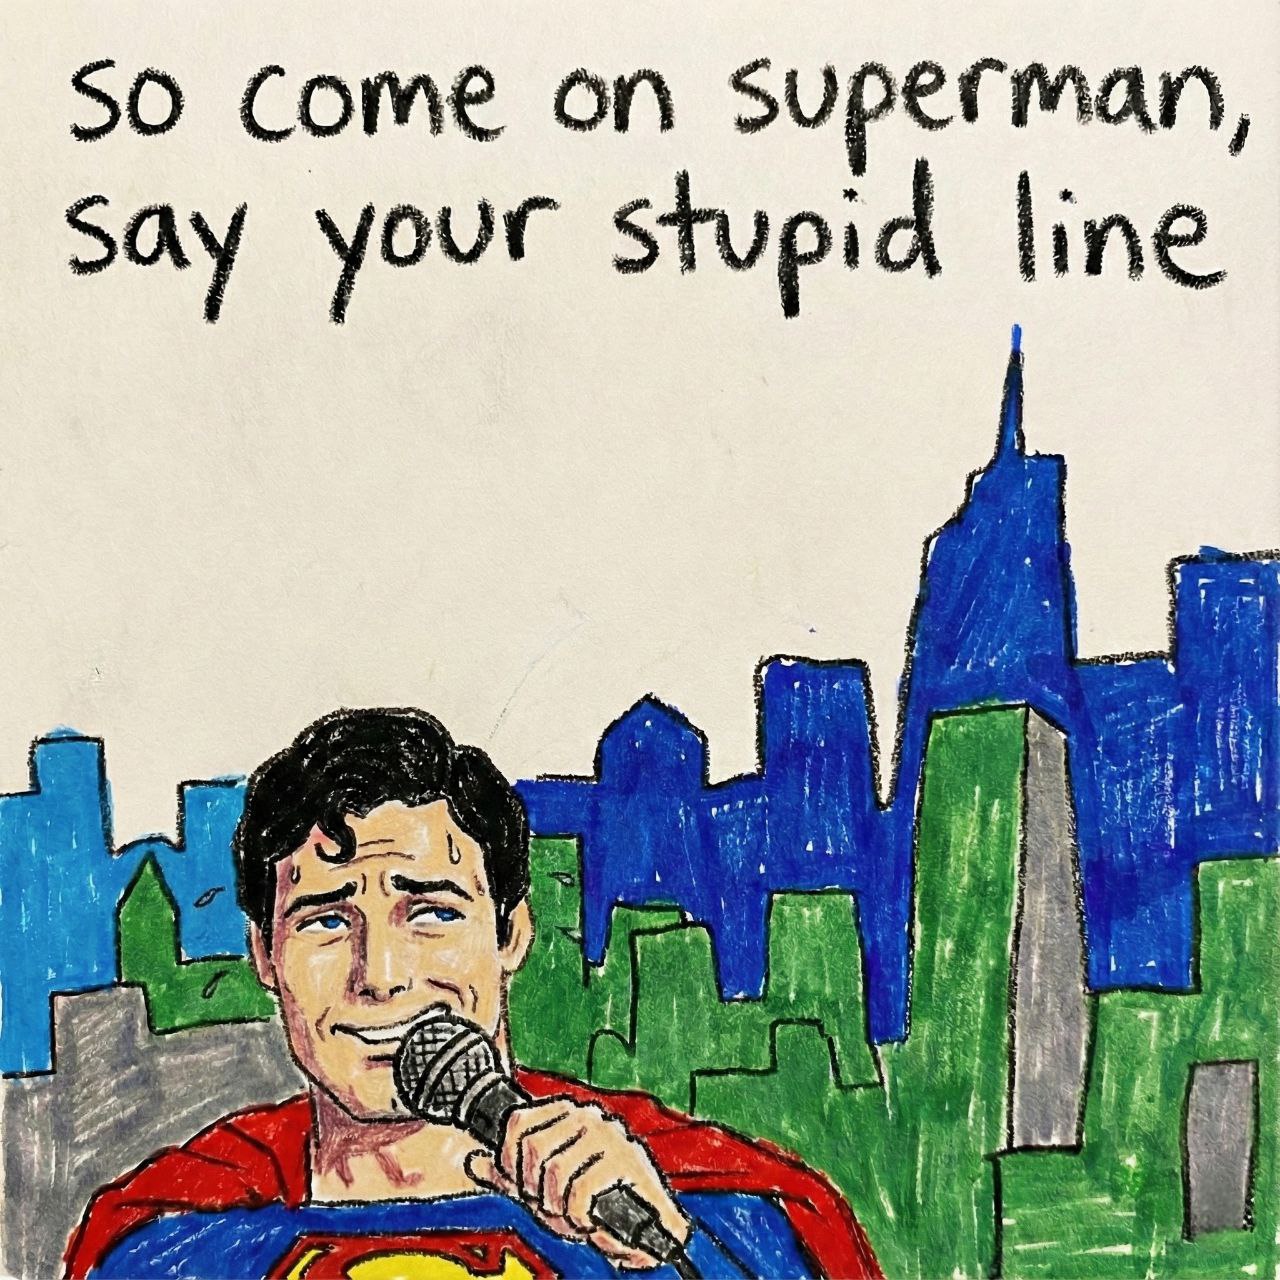 so come on superman,
say your stupid line